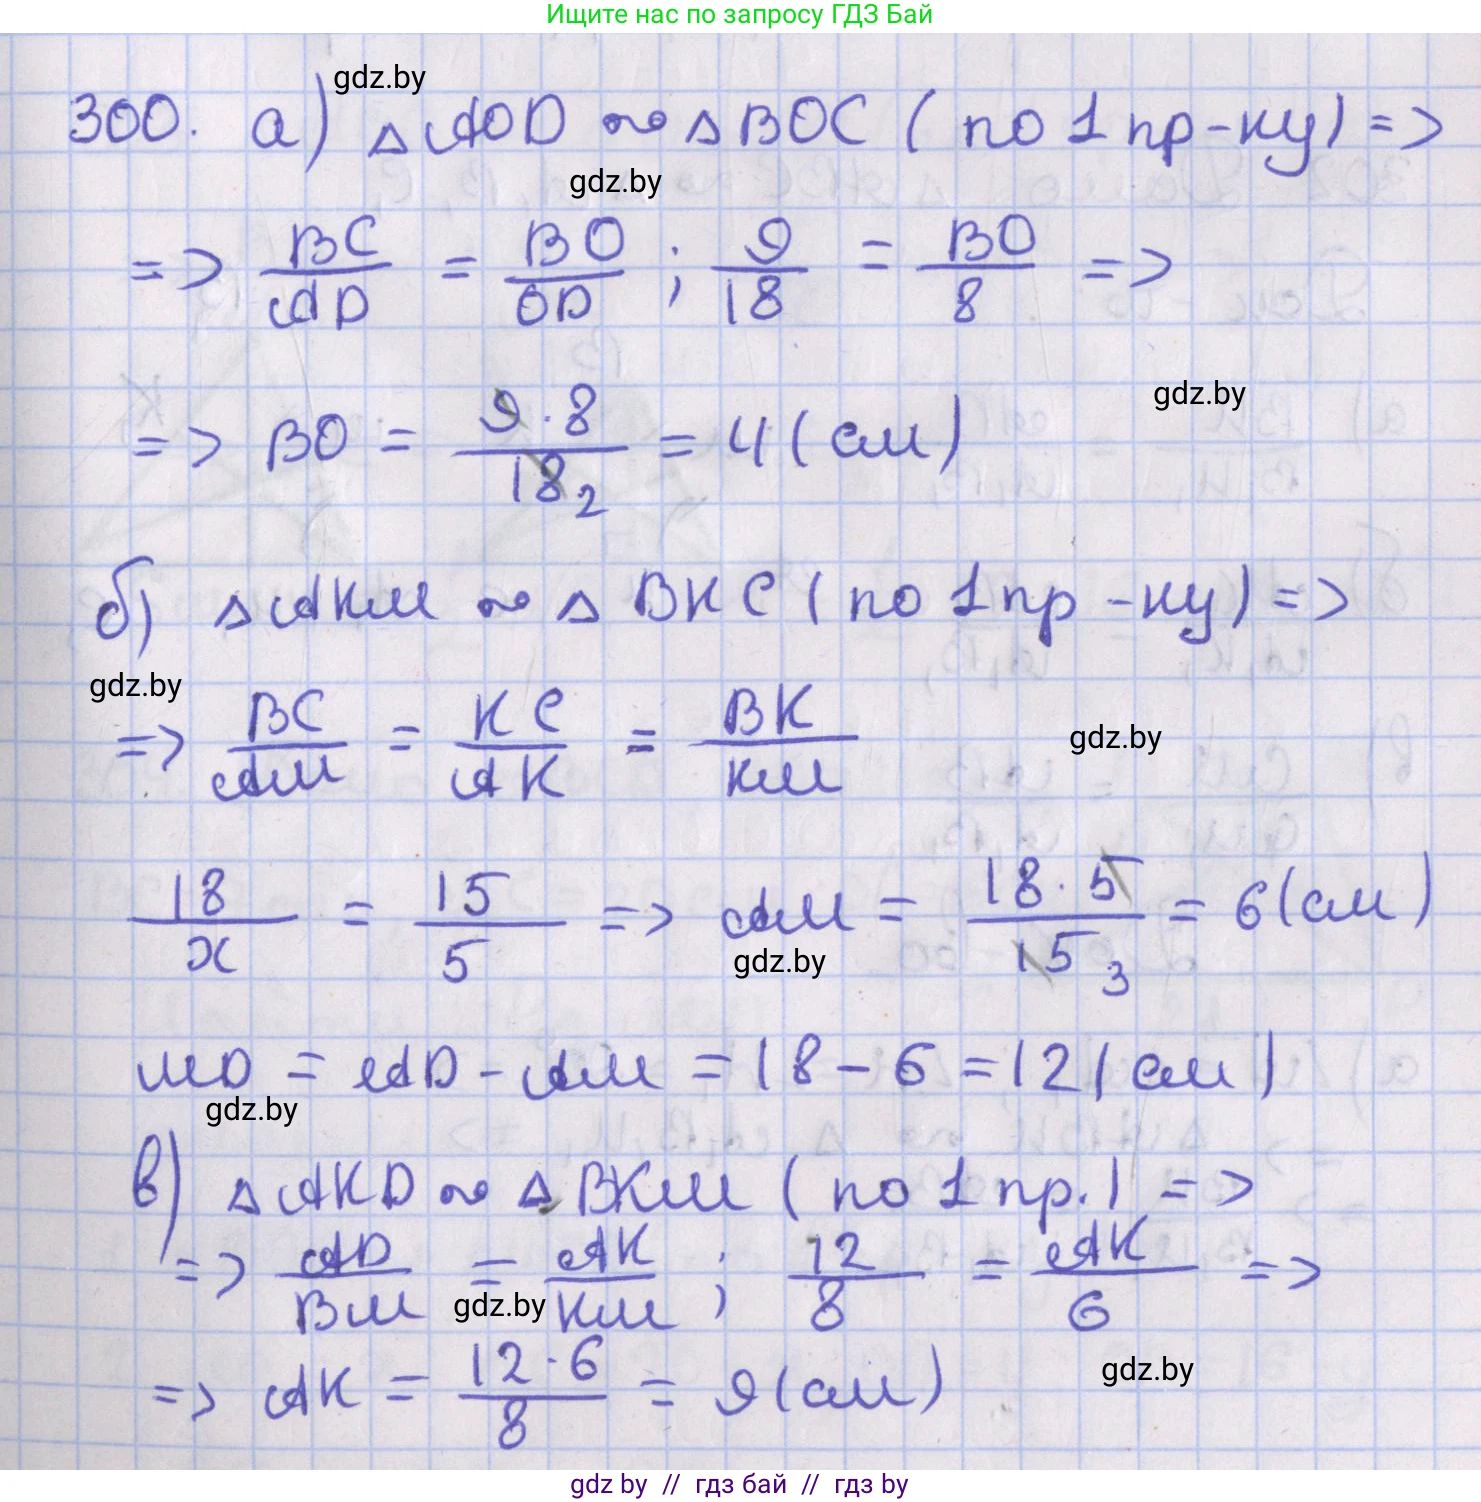 Ищите нас по запросу ГДЗ Бай
gdz.by
300. а) △AOD ~ △BOC (по 1 пр-ку) =>
gdz.by
=> BC/AD = BO/OD ; 9/18 = BO/8 =>
gdz.by
=> BO = 9·8/18 2 = 4 (см)
б) △AKM ~ △BKC (по 1 пр-ку) =>
gdz.by
=> BC/AM = KC/AK = BK/KM
gdz.by
18/x = 15/5 => AM = 18·5/15 3 = 6 (см)
gdz.by
MD = AD - AM = 18 - 6 = 12 (см)
gdz.by
в) △AKD ~ △BKM (по 1 пр.) =>
=> AD/BM = AK/KM ; 12/8 = AK/6 =>
gdz.by
=> AK = 12·6/8 = 9 (см)
gdz.by
gdz by // гдз бай // гдз by